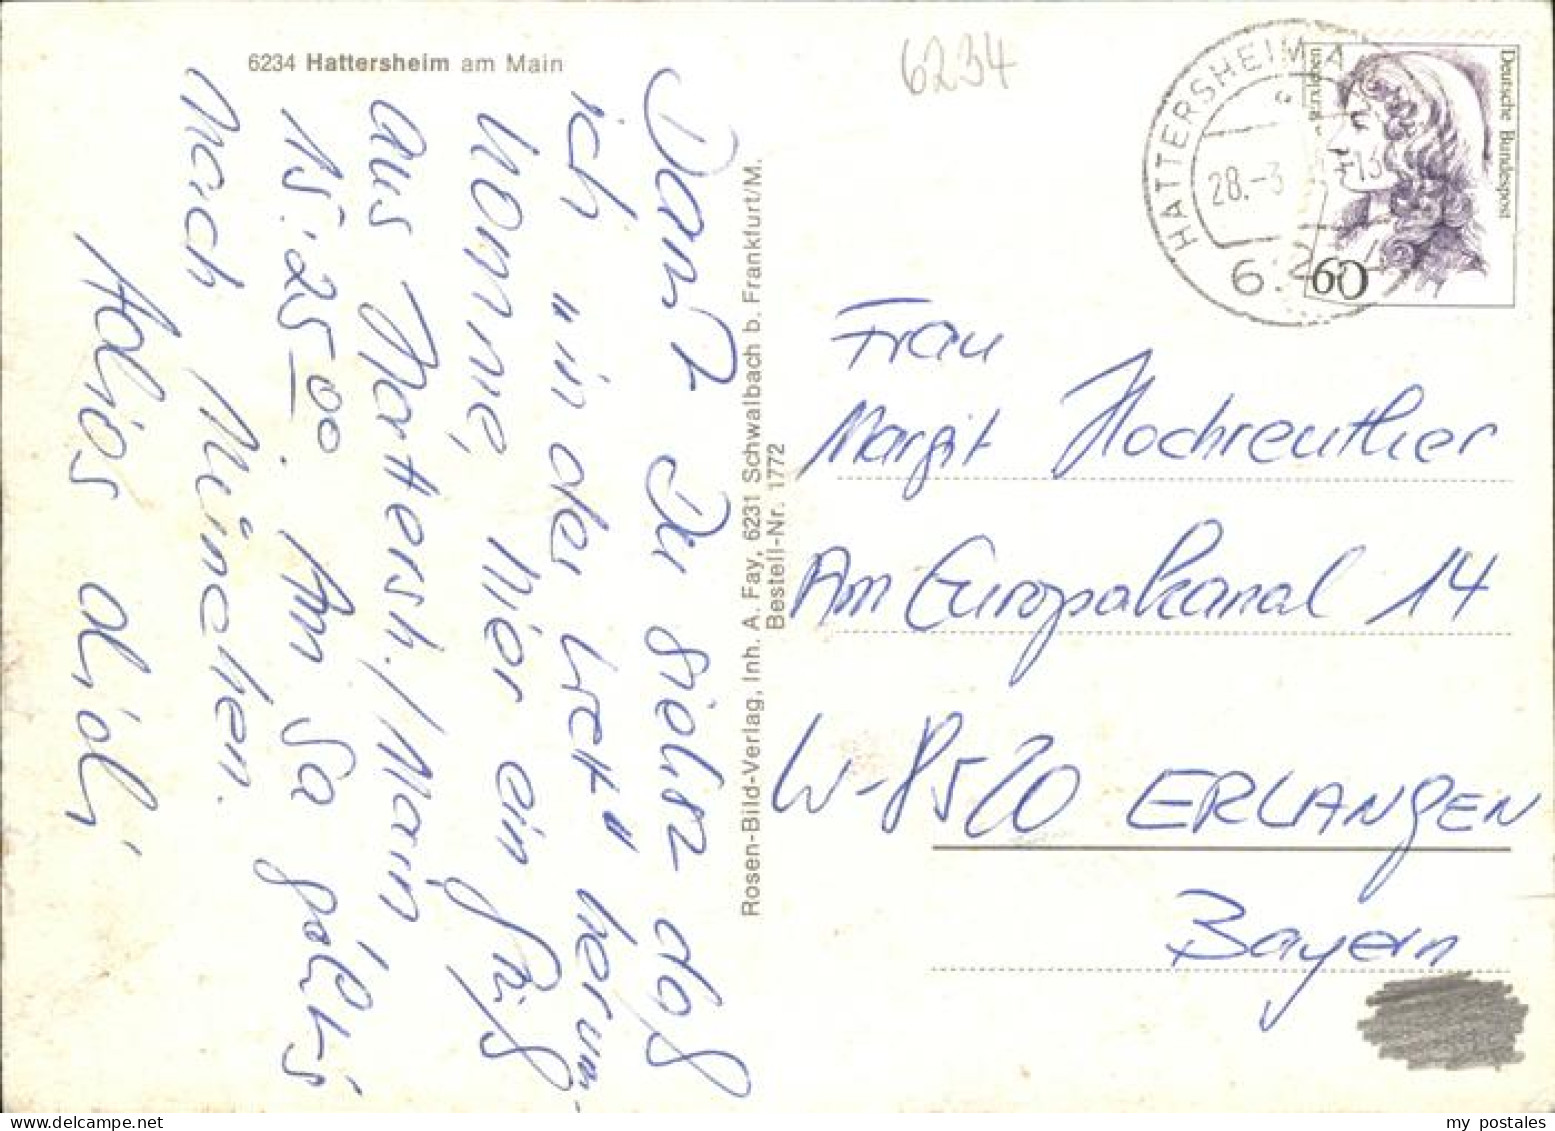 6234 Hattersheim am Main
6234
Damit Du siehst daß
ich "in der Welt" herum-
komme, hier ein Gruß
aus Hattersh./Main
15.25 00. Am Sa geht's
nach München.
Adios
Rosen-Bild-Verlag, Inh. A. Fay, 6231 Schwalbach b. Frankfurt/M.
Bestell-Nr. 1772
HATTERSHEIM A
28.-3
-13
6
Deutsche Bundespost
60
Frau
Margit Hochreuther
Am Europakanal 14
W-8520 ERLANGEN
Bayern
my postales